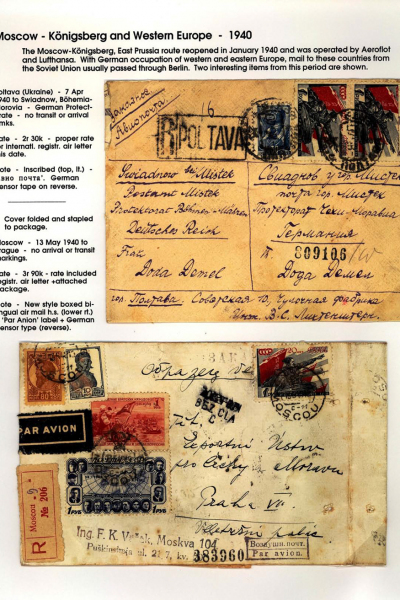 Moscow - Königsberg and Western Europe - 1940
The Moscow-Königsberg, East Prussia route reopened in January 1940 and was operated by Aeroflot
and Lufthansa. With German occupation of western and eastern Europe, mail to these countries from
the Soviet Union usually passed through Berlin. Two interesting items from this period are shown.
oltava (Ukraine) - 7 Apr
940 to Swiadnow, Böhemia-
oravia - German Protect-
rate - no transit or arrival
mks.
ate - 2r 30k - proper rate
or internatl. reg. air letter
his date.
ote - Inscribed (top, lt.) -
вно почта". German
ensor tape on reverse.
Cover folded and stapled
to package.
oscow - 13 May 1940 to
rague - no arrival or transit
markings.
ate - 3r 90k - rate included
registr. air letter +attached
ackage.
ote - New style boxed bi-
ngual air mail h.s. (lower rt.)
'Par Anion' label + German
ensor type (reverse).
Заказное
Авиопочта
16
R POLTAVA
Swiadnow bei Mistek
Postamt Mistek
Protektorat Böhmen-Mähren
Deutsches Reich
Frau
Doda Demel
Свиаднов у гор. Мистек
почта гор. Мистек
Протекторат Чехи-Моравиа
Германиа
809106/W
Дода Демел
гор. Полтава, Советская 10, Чулочная фабрика
Инж. В.С. Лихтенштерн.
Образец
MOSCOU
PAR AVION
R
Moscou 9
No 206
1 РУБ
1 РУБ
pro Čechy a Moravu
Praha VII.
Veletržní palác
Ing. F. K. Moskva 104
Puškinskaja ul. 21-7, kv.
383960
Воздушн. почт.
Par avion.